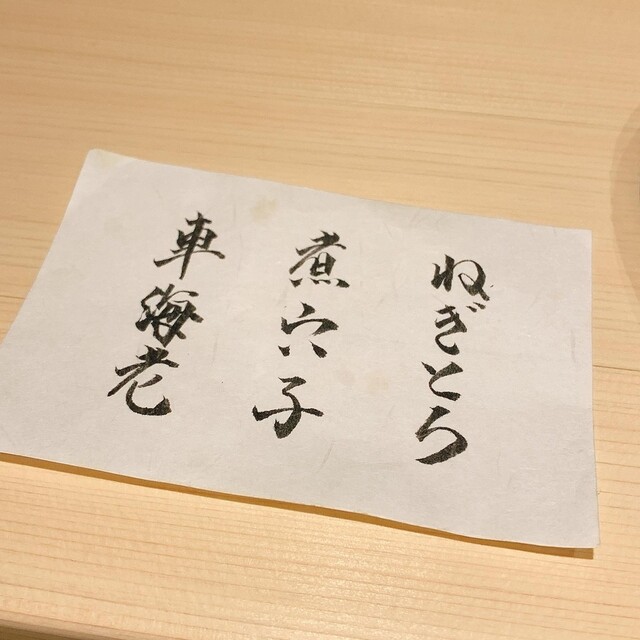 ねぎとろ
煮穴子
車海老